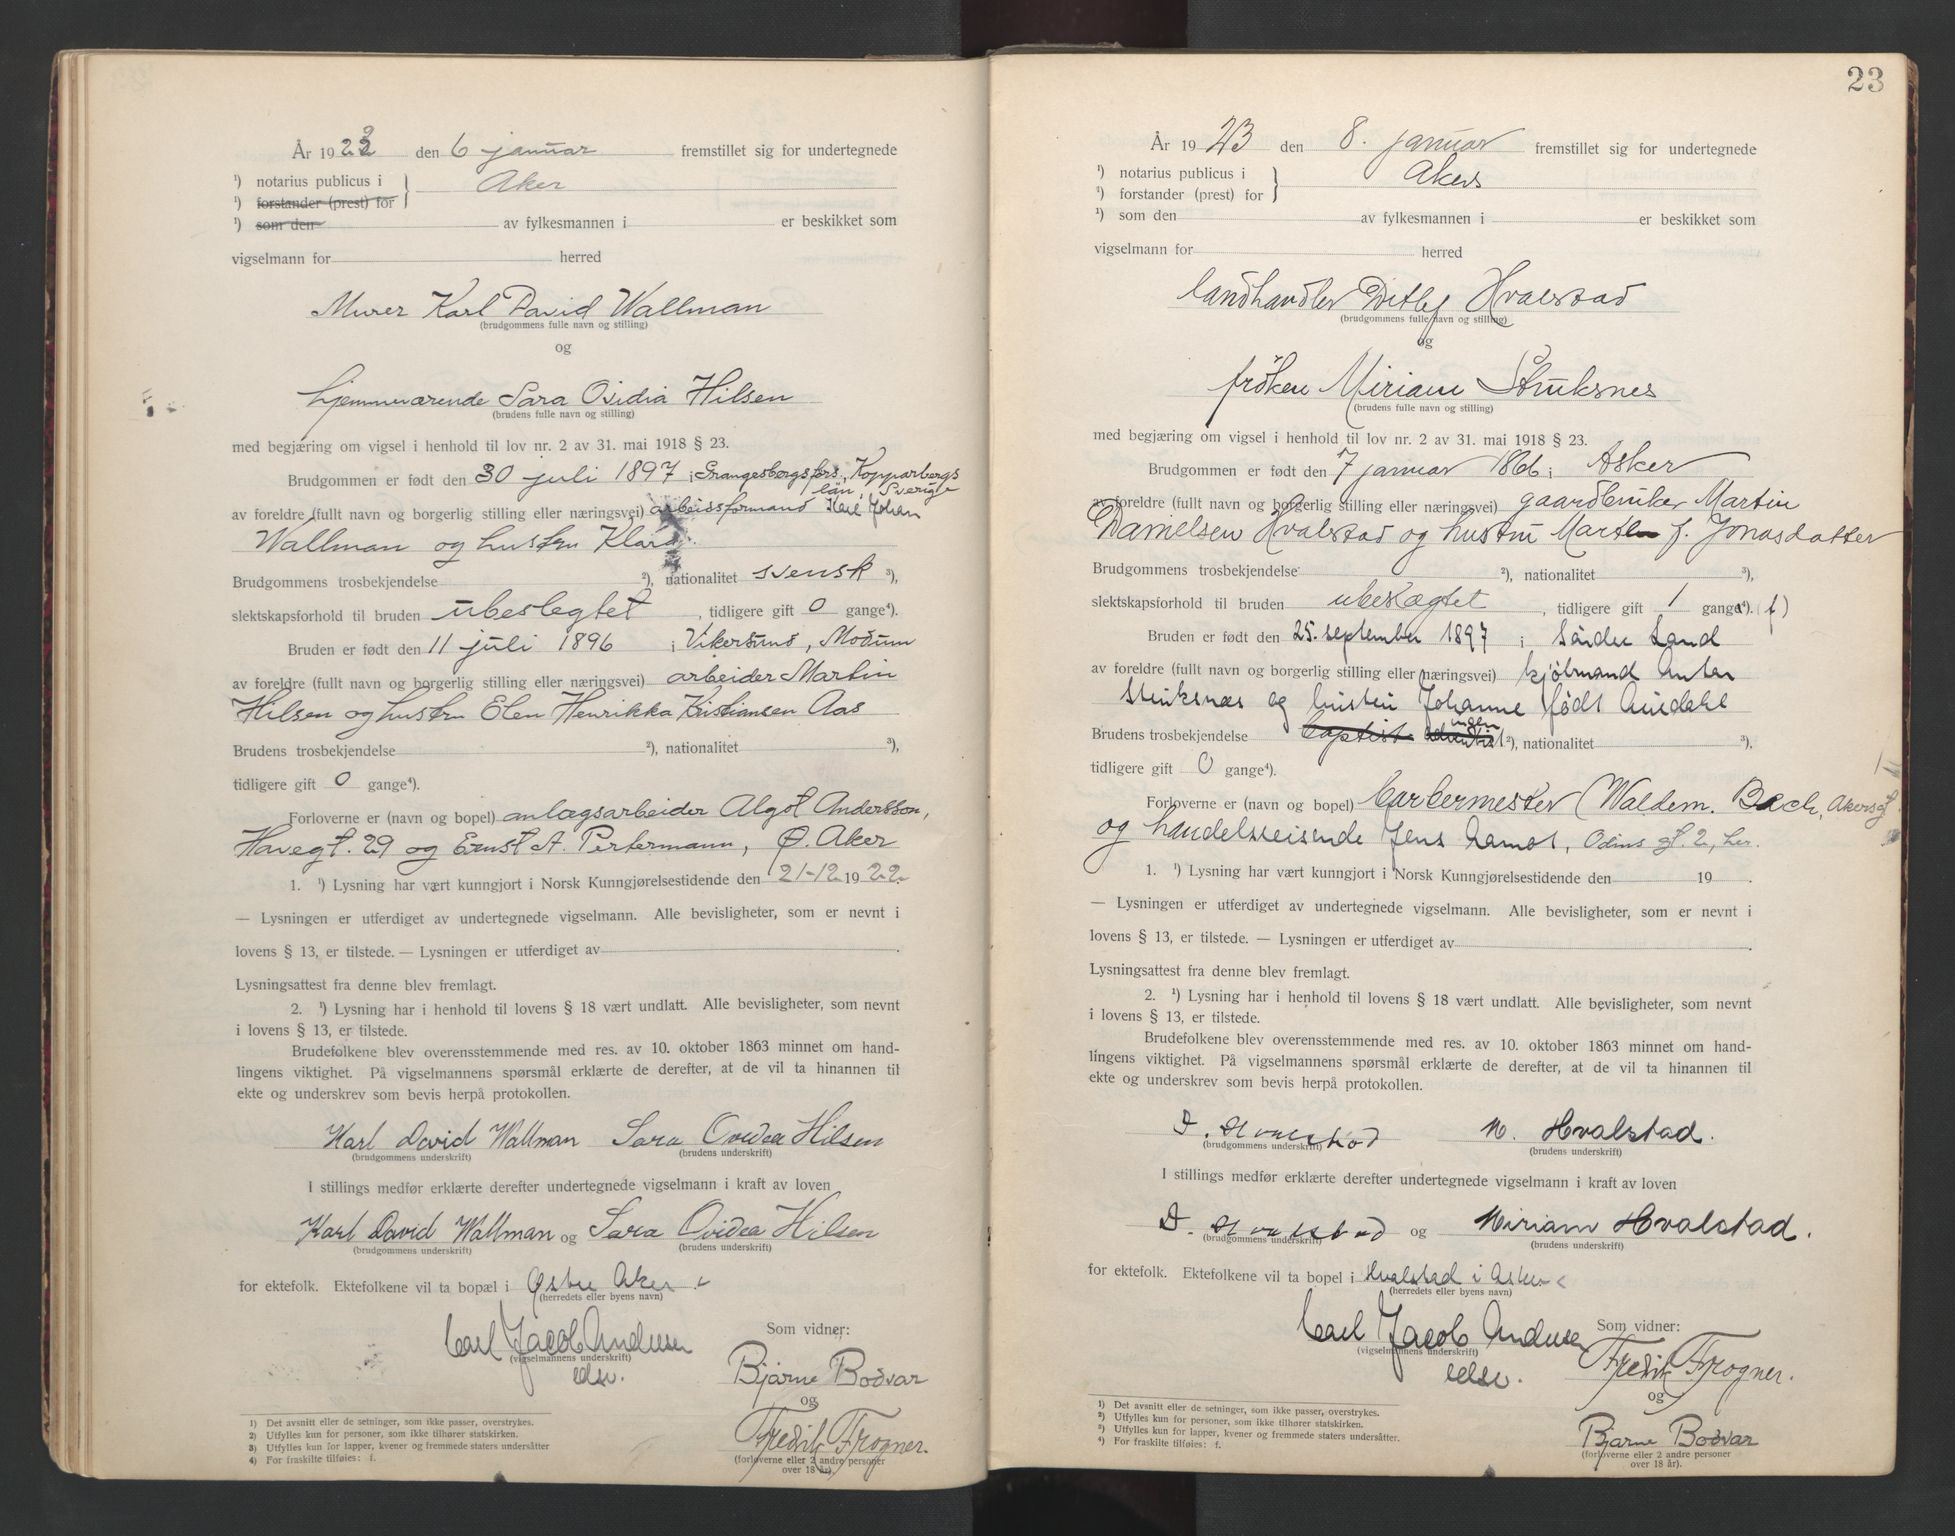 År 1923 den 6 januar fremstillet sig for undertegnede
¹) notarius publicus i } Aker
¹) forstander (prest) for
¹) som den av fylkesmannen i er beskikket som
vigselmann for herred
Murer Karl David Wallman
(brudgommens fulle navn og stilling)
og
hjemmeværende Sara Ovidia Hilsen
(brudens fulle navn og stilling)
med begjæring om vigsel i henhold til lov nr. 2 av 31. mai 1918 § 23.
Brudgommen er født den 30 juli 1897 i Grangesbergsfors, Kopparbergs
län, Sverige
av foreldre (fullt navn og borgerlig stilling eller næringsvei) arbeissformand Karl Johan
Wallman og hustru Klara.
Brudgommens trosbekjendelse ²), nationalitet svensk ³),
slektskapsforhold til bruden ubeslegtet, tidligere gift 0 gange⁴).
Bruden er født den 11 juli 1896 i Vikersund, Modum
av foreldre (fullt navn og borgerlig stilling eller næringsvei) arbeider Martin
Hilsen og hustru Elen Henrikka Kristiansen Aas
Brudens trosbekjendelse ²), nationalitet ³),
tidligere gift 0 gange⁴).
Forloverne er (navn og bopel) anlægsarbeider Algot Andersson,
Havegt. 29 og Ernst A. Pertermann, Ø. Aker
1. ¹) Lysning har vært kunngjort i Norsk Kunngjørelsestidende den 21-12 1922.
— Lysningen er utferdiget av undertegnede vigselmann. Alle bevisligheter, som er nevnt i
lovens § 13, er tilstede. — Lysningen er utferdiget av .
Lysningsattest fra denne blev fremlagt.
2. ¹) Lysning har i henhold til lovens § 18 vært undlatt. Alle bevisligheter, som nevnt
i lovens § 13, er tilstede.
Brudefolkene blev overensstemmende med res. av 10. oktober 1863 minnet om hand-
lingens viktighet. På vigselmannens spørsmål erklærte de derefter, at de vil ta hinannen til
ekte og underskrev som bevis herpå protokollen.
Karl David Wallman Sara Ovidea Hilsen
(brudgommens underskrift) (brudens underskrift)
I stillings medfør erklærte derefter undertegnede vigselmann i kraft av loven
Karl David Wallman og Sara Ovidea Hilsen
(brudgommens underskrift) (brudens underskrift)
for ektefolk. Ektefolkene vil ta bopæl i Østre Aker
(herredets eller byens navn)
Carl Jacob Andersen
(vigselmannens underskrift)
edsv.
Som vidner:
Bjarne Bodvar
og
Fredrik Frogner.
(forloverne eller 2 andre personer
over 18 år).
1) Det avsnitt eller de setninger, som ikke passer, overstrykes.
2) Utfylles kun for personer, som ikke tilhører statskirken.
3) Utfylles kun for lapper, kvener og fremmede staters undersåtter
4) For fraskilte tilføies: f.
23
År 1923 den 8. januar fremstillet sig for undertegnede
¹) notarius publicus i } Akers
¹) forstander (prest) for
¹) som den av fylkesmannen i er beskikket som
vigselmann for herred
landhandler Ditlef Hvalstad
(brudgommens fulle navn og stilling)
og
frøken Miriam Struksnes
(brudens fulle navn og stilling)
med begjæring om vigsel i henhold til lov nr. 2 av 31. mai 1918 § 23.
Brudgommen er født den 7 januar 1866 i Asker
av foreldre (fullt navn og borgerlig stilling eller næringsvei) gaardbruker Martin
Danielsen Hvalstad og hustru f. Jonasdatter
Brudgommens trosbekjendelse ²), nationalitet ³),
slektskapsforhold til bruden ubeslægtet, tidligere gift 1 gange⁴). (f)
Bruden er født den 25. september 1897 i Søndre Land
av foreldre (fullt navn og borgerlig stilling eller næringsvei) kjøbmand Anton
Struksnæs og hustru Johanne født
Brudens trosbekjendelse baptist adventist ingen ²), nationalitet ³),
tidligere gift 0 gange⁴).
Forloverne er (navn og bopel) barbermester Waldem. Bech, Akersgt
og handelsreisende Jens Aamot, Odins gt. 2, her.
1. ¹) Lysning har vært kunngjort i Norsk Kunngjørelsestidende den 19 .
— Lysningen er utferdiget av undertegnede vigselmann. Alle bevisligheter, som er nevnt i
lovens § 13, er tilstede. — Lysningen er utferdiget av .
Lysningsattest fra denne blev fremlagt.
2. ¹) Lysning har i henhold til lovens § 18 vært undlatt. Alle bevisligheter, som nevnt
i lovens § 13, er tilstede.
Brudefolkene blev overensstemmende med res. av 10. oktober 1863 minnet om hand-
lingens viktighet. På vigselmannens spørsmål erklærte de derefter, at de vil ta hinannen til
ekte og underskrev som bevis herpå protokollen.
D. Hvalstad M. Hvalstad.
(brudgommens underskrift) (brudens underskrift)
I stillings medfør erklærte derefter undertegnede vigselmann i kraft av loven
D. Hvalstad og Miriam Hvalstad.
(brudgommens underskrift) (brudens underskrift)
for ektefolk. Ektefolkene vil ta bopel i Hvalstad i Asker
(herredets eller byens navn)
Carl Jacob Andersen
(vigselmannens underskrift)
edsv.
Som vidner:
Fredrik Frogner.
og
Bjarne Bodvar
(forloverne eller 2 andre personer
over 18 år).
1) Det avsnitt eller de setninger, som ikke passer, overstrykes.
2) Utfylles kun for personer, som ikke tilhører statskirken.
3) Utfylles kun for lapper, kvener og fremmede staters undersåtter.
4) For fraskilte tilføies: f.